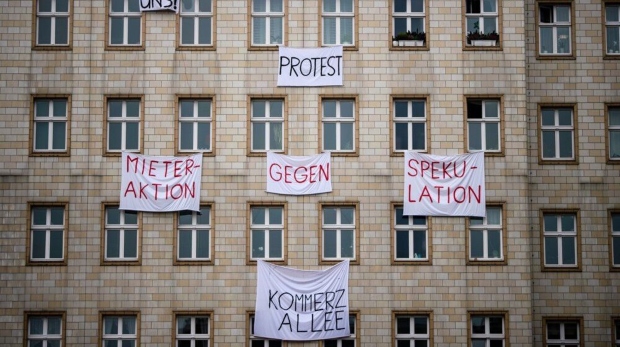 UNS!
PROTEST
MIETER-
AKTION
GEGEN
SPEKU-
LATION
KOMMERZ
ALLEE